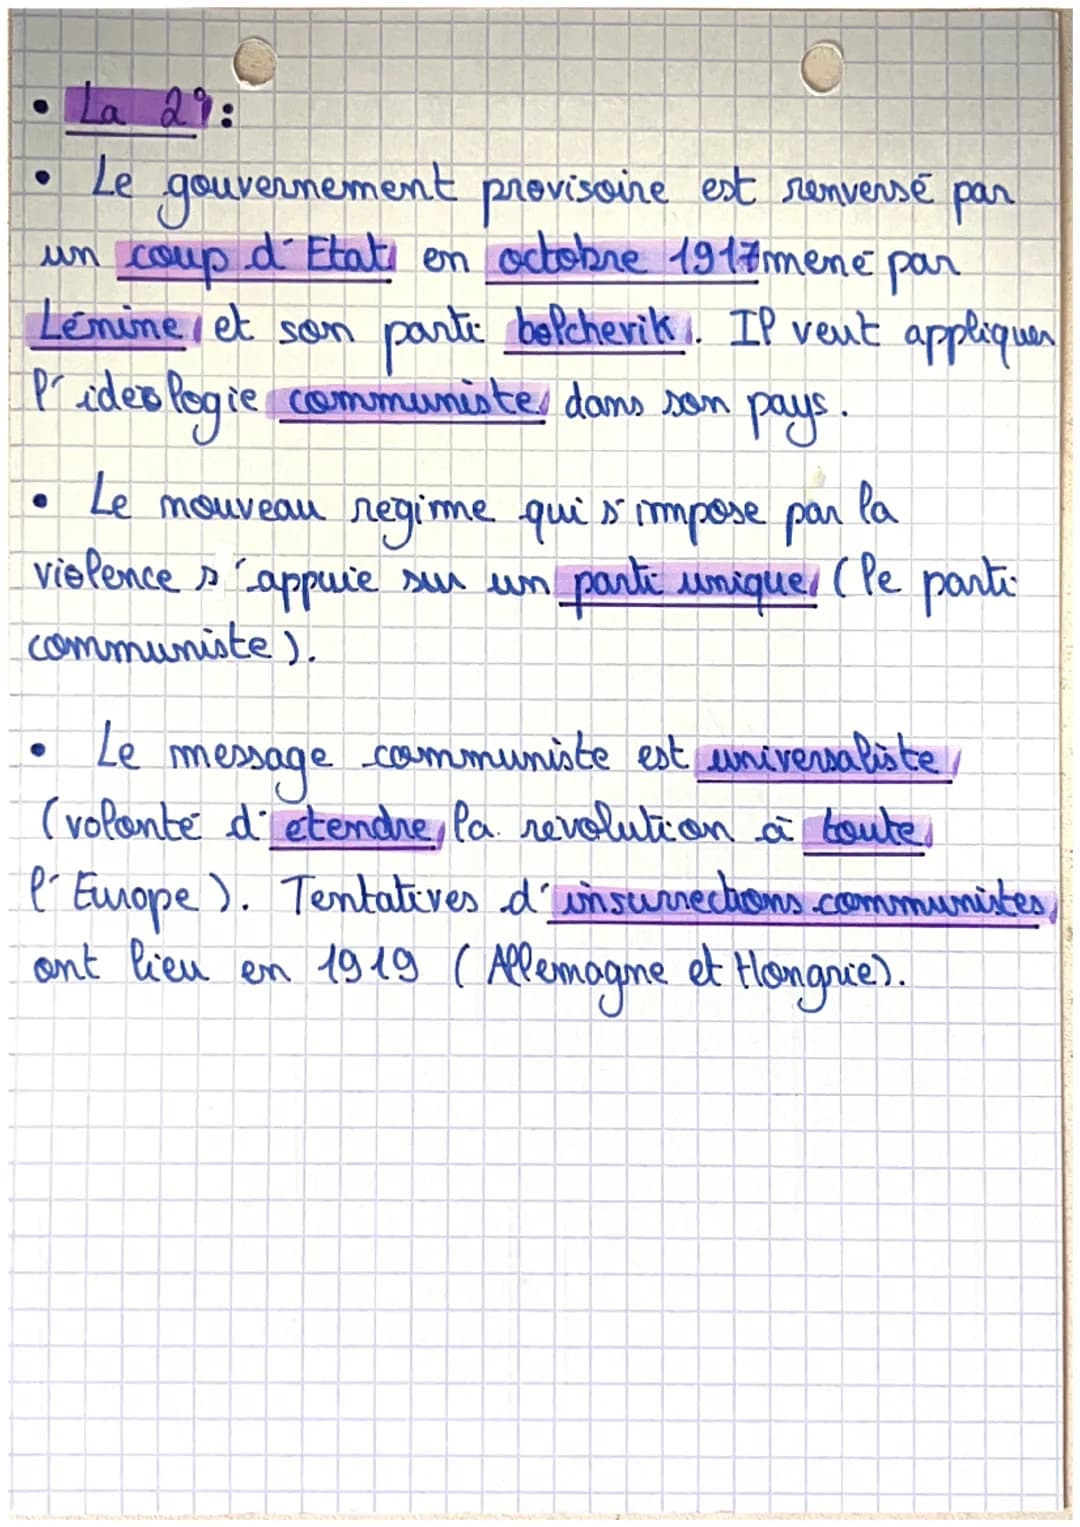 • La 2e :
• Le gouvernement provisoire est renversé par
un coup d'Etat en octobre 1917 mené par
Lénine et son parti bolchevik. Il veut appliquer
l'ideologie communiste dans son pays.
• Le nouveau regime qui s'impose par la
violence s'appuie sur un parti unique (le parti
communiste).
• Le message communiste est universaliste
(volonté d'etendre la revolution à toute
l'Europe). Tentatives d'insurrections communistes
ont lieu en 1919 (Allemagne et Hongrie).